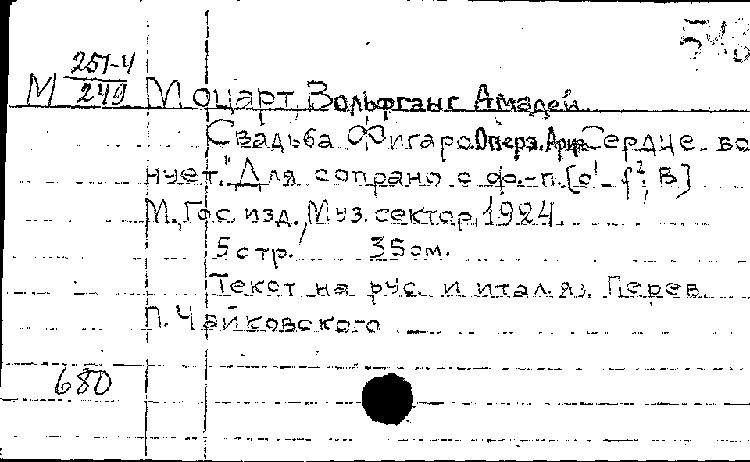 543
М 251-4/249 Моцарт, Вольфганг Амадей
Свадьба Фигаро. Опера. Ария "Сердце во
нует." Для сопрано с ф.-п. [c¹ - f², B]
М., Гос. изд., Муз. сектор, 1924.
5 стр. 35 см.
Текст на рус. и итал. яз. Перев.
П. Чайковского
680